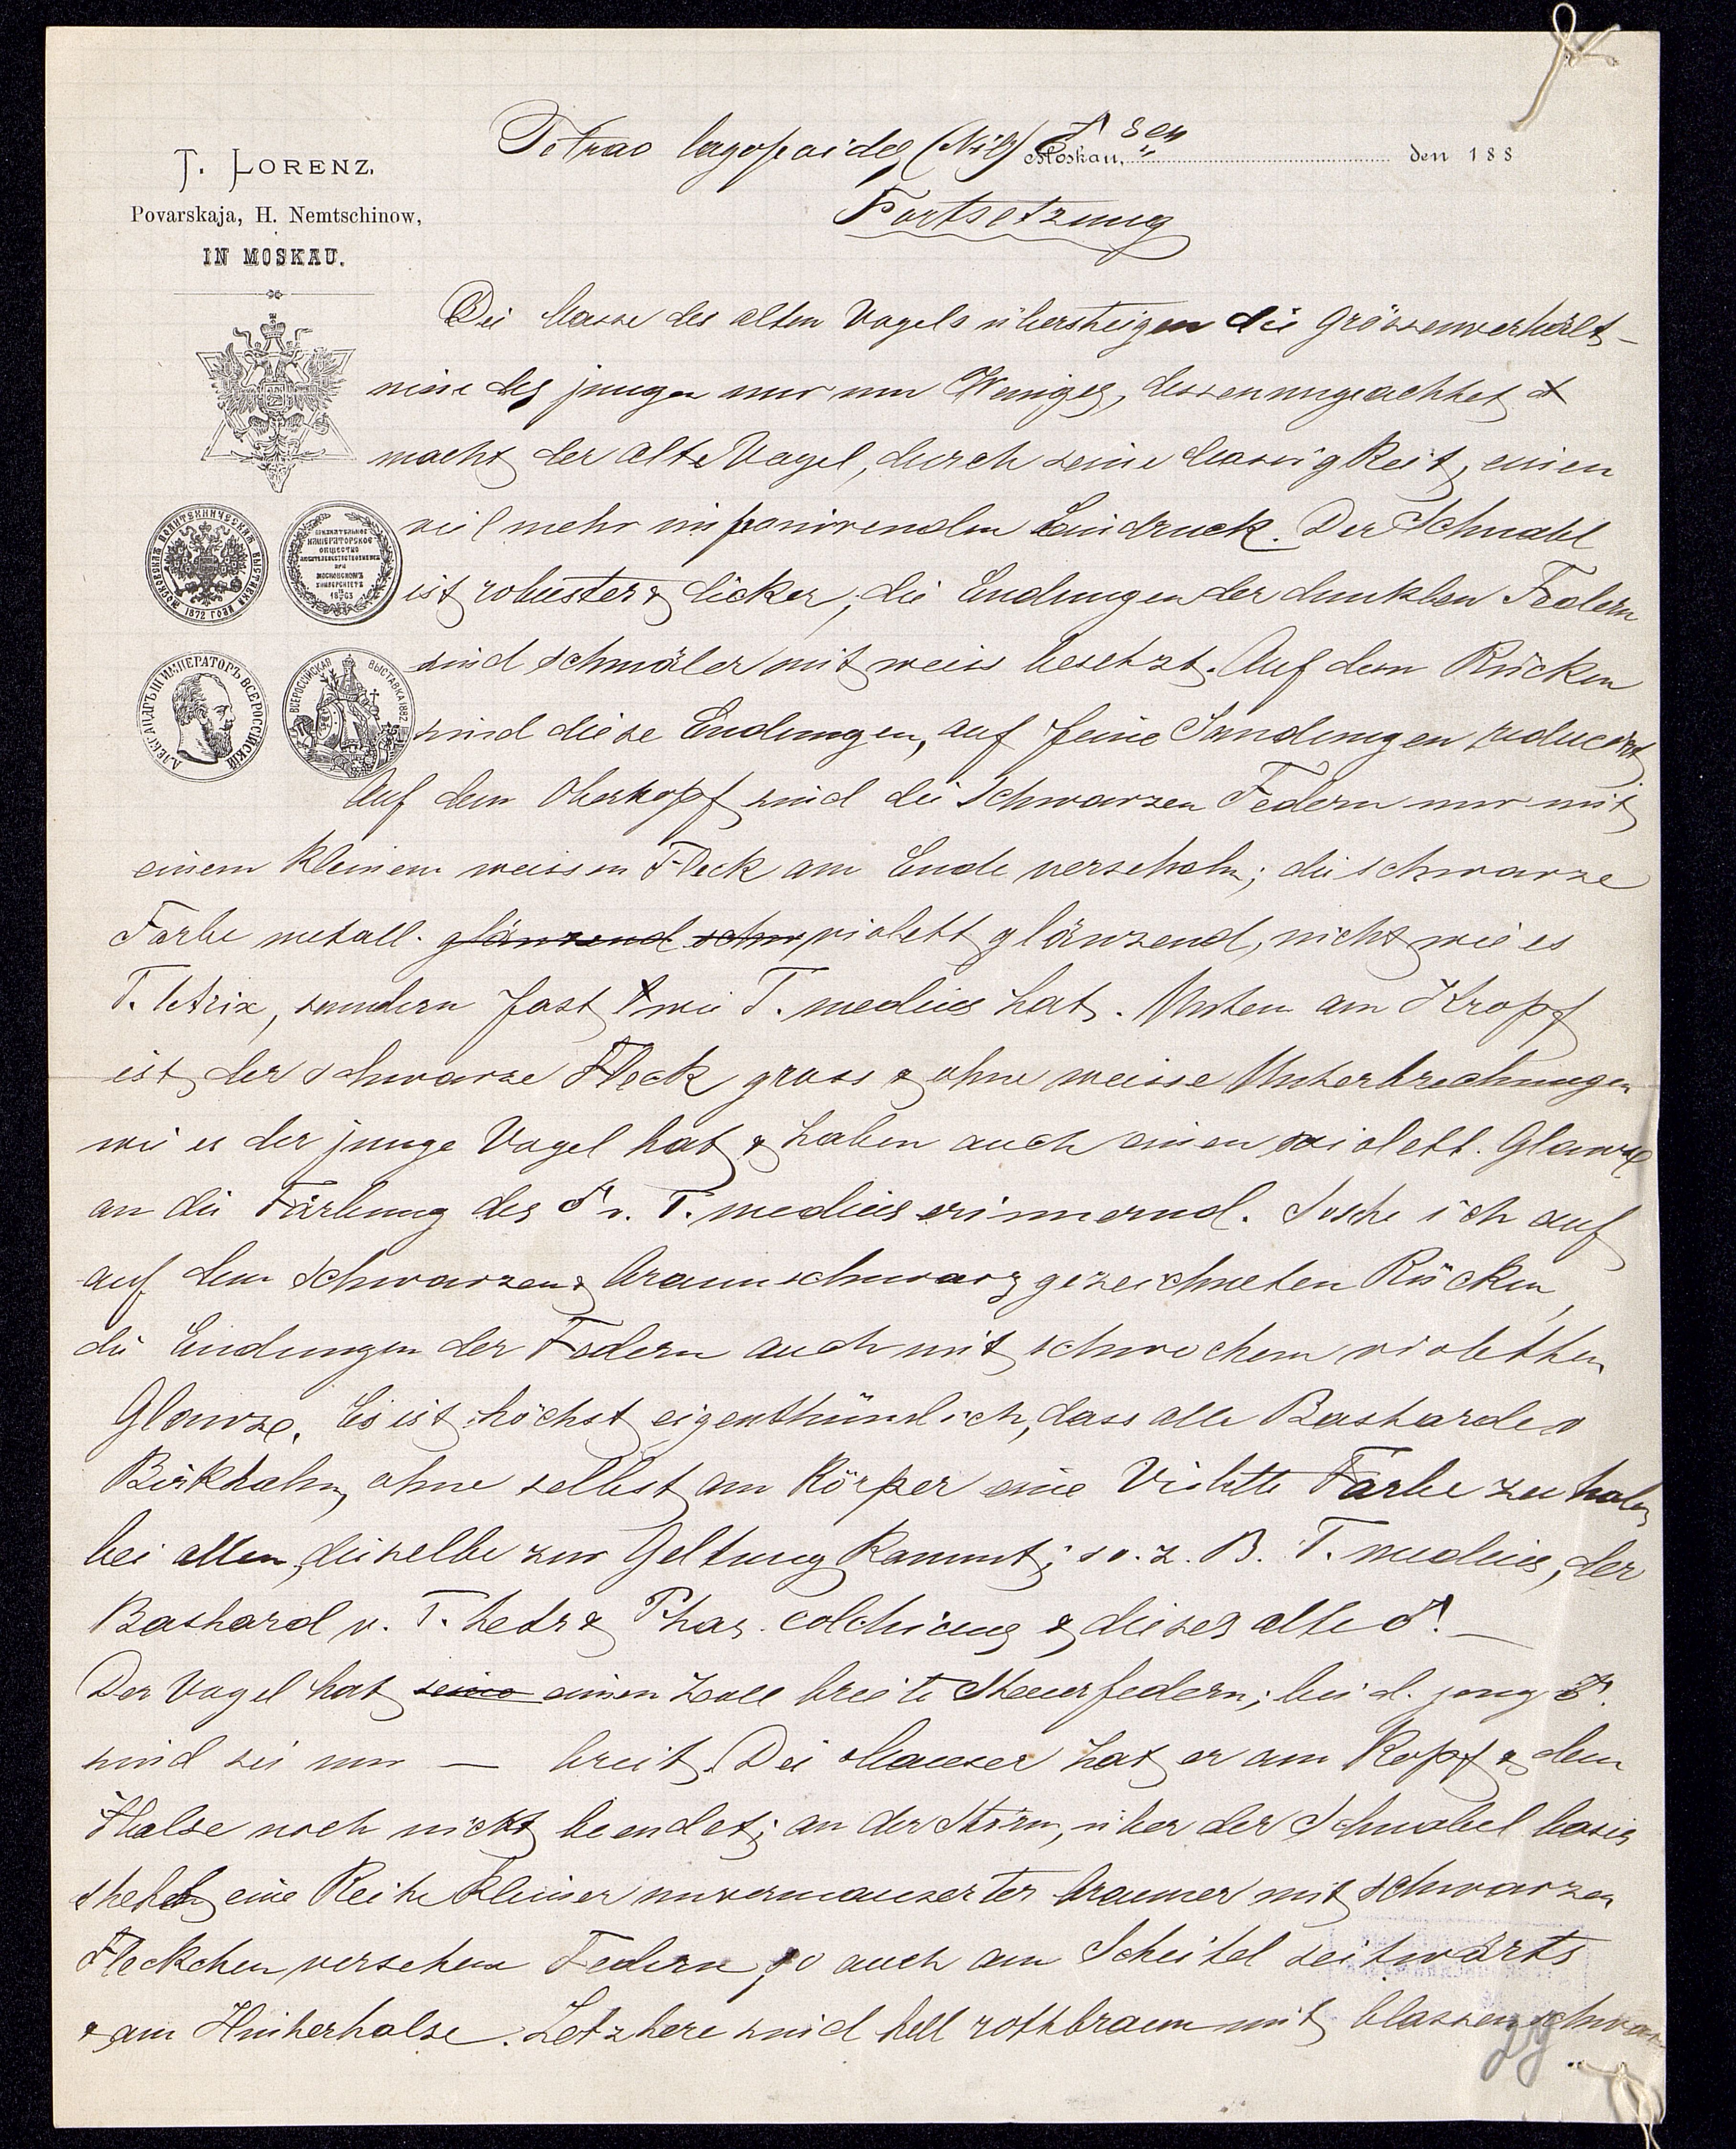 Tetrao lagopoides (Nils) ♂ sen
Moskau, den 188
T. LORENZ.
Povarskaja, H. Nemtschinow,
IN MOSKAU.
Fortsetzung
Die Masse des alten Vogels übersteigen die Grössenverhält-
nisse des jungen nur um Weniges, dessenungeachtet
macht der alte Vogel, durch seine Massigkeit, einen
viel mehr imponirenden Eindruck. Der Schnabel
ist robuster & dicker, die Endungen der dunklen Federn
sind schmäler mit weiss besetzt. Auf dem Rücken
sind diese Endungen, auf feine Sandungen reducirt
Auf dem Oberkopf sind die schwarzen Federn nur mit
einem kleinem weissen Fleck am Ende versehen; die schwarze
Farbe metall. glänzend schw violett glänzend, nicht wie es
T. tetrix, sondern fast wie T. medius hat. Unten am Kropf
ist der schwarze Fleck gross & ohne weisse Unterbrechungen
wie es der junge Vogel hat & haben auch einen violett. Glanz
an die Färbung des ♂ v. T. medius erinnernd. Solche ich auf
auf dem schwarzen & braunschwarz gezeichneten Rücken,
die Endungen der Federn auch mit schwachem violetten
Glanze. Es ist höchst eigenthümlich, dass alle Bastarde v
Birkhahn, ohne selbst am Körper eine Violette Farbe zu haben
bei allen, dieselbe zur Geltung kommt; so. z. B. T. medius, der
Bastard v. T. tetr & Phas. colchicus & dieses alte ♂! —
Der Vogel hat seine einen Zoll breite Steuerfedern; bei d. jung ♂.
sind sie nur — breit. Die Mauser hat er am Kopf & dem
Halse noch nicht beendet; an der Stirn, über der Schnabel basis
steht eine Reihe kleiner unvermauserter brauner mit schwarzen
Fleckchen versehene Federn, so auch am Scheitel seitwärts
& am Hinterhalse. Letztere sind hell rothbraun mit blassen schwar
МОСКОВСКАЯ ПОЛИТЕХНИЧЕСКАЯ ВЫСТАВКА
1872 ГОДА
ИМПЕРАТОРСКОЕ
ОБЩЕСТВО
ЛЮБИТЕЛЕЙ ЕСТЕСТВОЗНАНІЯ
ПРИ
МОСКОВСКОМЪ
УНИВЕРСИТЕТѢ
1863
АЛЕКСАНДРЪ III ИМПЕРАТОРЪ ВСЕРОССІЙСКІЙ
ВСЕРОССІЙСКАЯ ВЫСТАВКА 1882 Г.